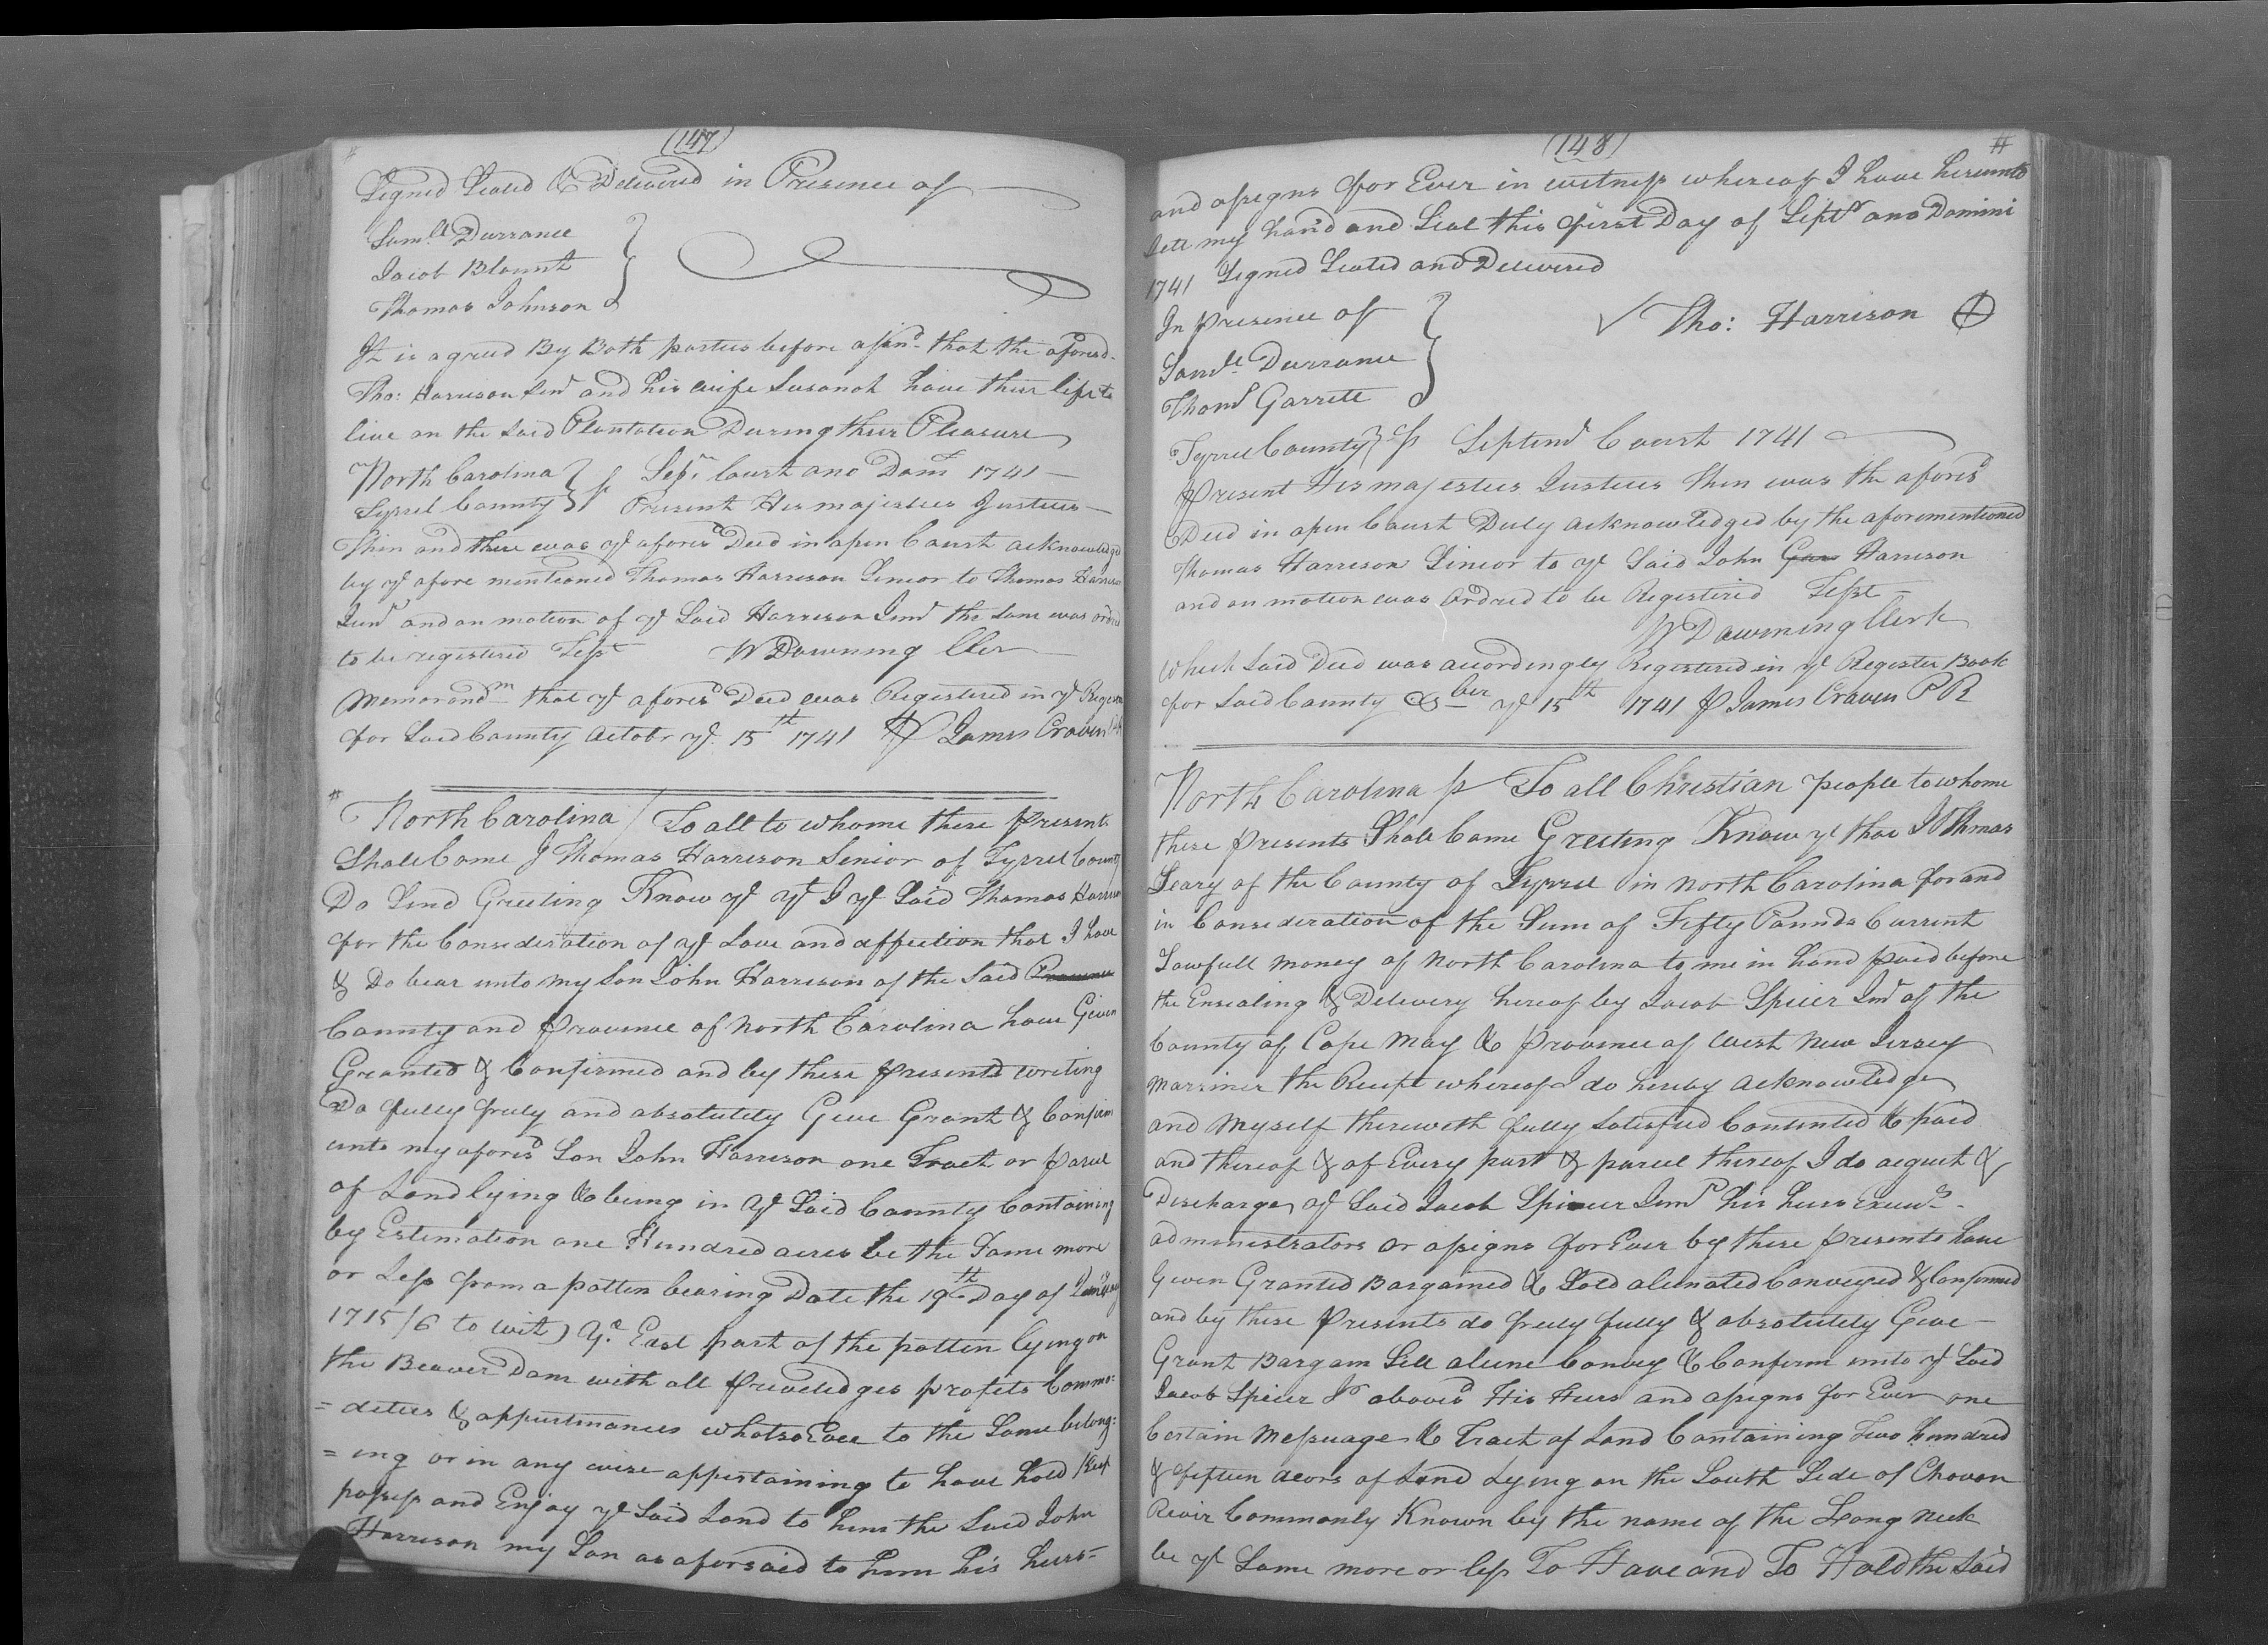 (147)
Signed Sealed & Delivered in Presence of
Saml. Durrance
Jacob Blount
Thomas Johnson
It is agreed By Both parties before assnd. that the aforesd.
Tho: Harrison Senr and his wife Susanah have their life to
live on the said Plantation During their Pleasure
North Carolina } ss Sepr. Court ano Domi 1741
Tyrrel County } Present His majesties Justices
Then and there was ye aforesd Deed in open Court acknowledgd
by ye afore mentioned Thomas Harrison Senior to Thomas Harrison
Junr and on motion of ye Said Harrison Junr the same was ordred
to be registered Test W Downing Cler
Memorandm that ye aforesd Deed was Registered in ye Register
for Said County Octobr ye 15th 1741 P James Craven
North Carolina / To all to whome these Presents
Shall Come I Thomas Harrison Senior of Tyrrel County
Do Send Greeting Know ye yt I ye Said Thomas Harrison
for the Consideration of ye Love and affection that I have
& Do bear unto my Son John Harrison of the Said Province
County and province of North Carolina have Given
Granted & Confirmed and by these presents writing
Do fully freely and absolutely Give Grant & Confirm
unto my aforesd Son John Harrison one Tract or parcel
of Land lying & being in ye Said County Containing
by Estimation one Hundred acres be the Same more
or Less from a patten bearing Date the 19th Day of
1715/6 to wit) ye East part of the patten lying on
the Beaver Dam with all priveledges profits Commo=
=dities & appurtinances whatsoEver to the Same belong=
=ing or in any wise appertaining to have hold
possess and Enjoy ye Said Land to him the Said John
Harrison my Son as aforsaid to him his heirs=
(148)
and assigns for Ever in witness whereof I have hereunto
Sett my hand and Seal this first Day of Septr ano Domini
1741 Signed Sealed and Delivered
In presence of
Saml. Durrance
Thoms Garrett
Tho: Harrison
Tyrrel County } ss Septemr Court 1741
Present His majesties Justices then was the aforesd
Deed in open Court Duly acknowledged by the aforementioned
Thomas Harrison Sinior to ye Said John Gar Harrison
and on motion was Ordred to be Registered Test
W Downing Clerk
Which Said Deed was accordingly Registered in ye Register Book
for Said County 8ber ye 15th 1741 P James Craven P R
North Carolina ss To all Christian people to whome
these presents Shall Come Greeting Know ye that I Thmas
Leary of the County of Tyrrel in North Carolina for and
in Consideration of the Sum of Fifty Pounds Current
Lawfull money of North Carolina to me in hand paid before
the Ensealing & Delivery hereof by Jacob Spicer Junr of the
County of Cape May & province of West New Jersey
Marriner the Recipt whereof I do hereby acknowledge
and myself therewith fully Satisfied Contented & paid
and thereof & of Every part & parcel thereof I do acquit &
Discharge ye Said Jacob Spicer Junr his heirs Execurs.
administrators or assigns for Ever by these presents have
Given Granted Bargained & Sold alienated Conveyed & Confirmed
and by these Presents do freely fully & absolutely Give
Grant Bargain Sell aliene Convey & Confirm unto ye Said
Jacob Spicer Jr abovesd His Heirs and assigns for Ever one
Certain Messuage & Tract of Land Containing Two hundred
& fifteen acors of Land Lying on the South Side of Chovan
River Commonly Known by the name of the Long neck
be ye Same more or less To Have and To Hold the Said